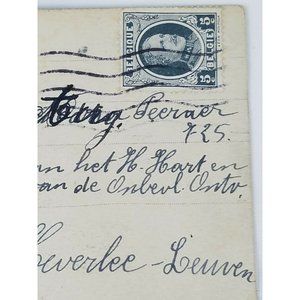 BELGIQUE BELGIË
5c 5c
Peeraer
725.
an het H. Hart en
van de Onbevl. Ontv.
Heverlee - Leuven